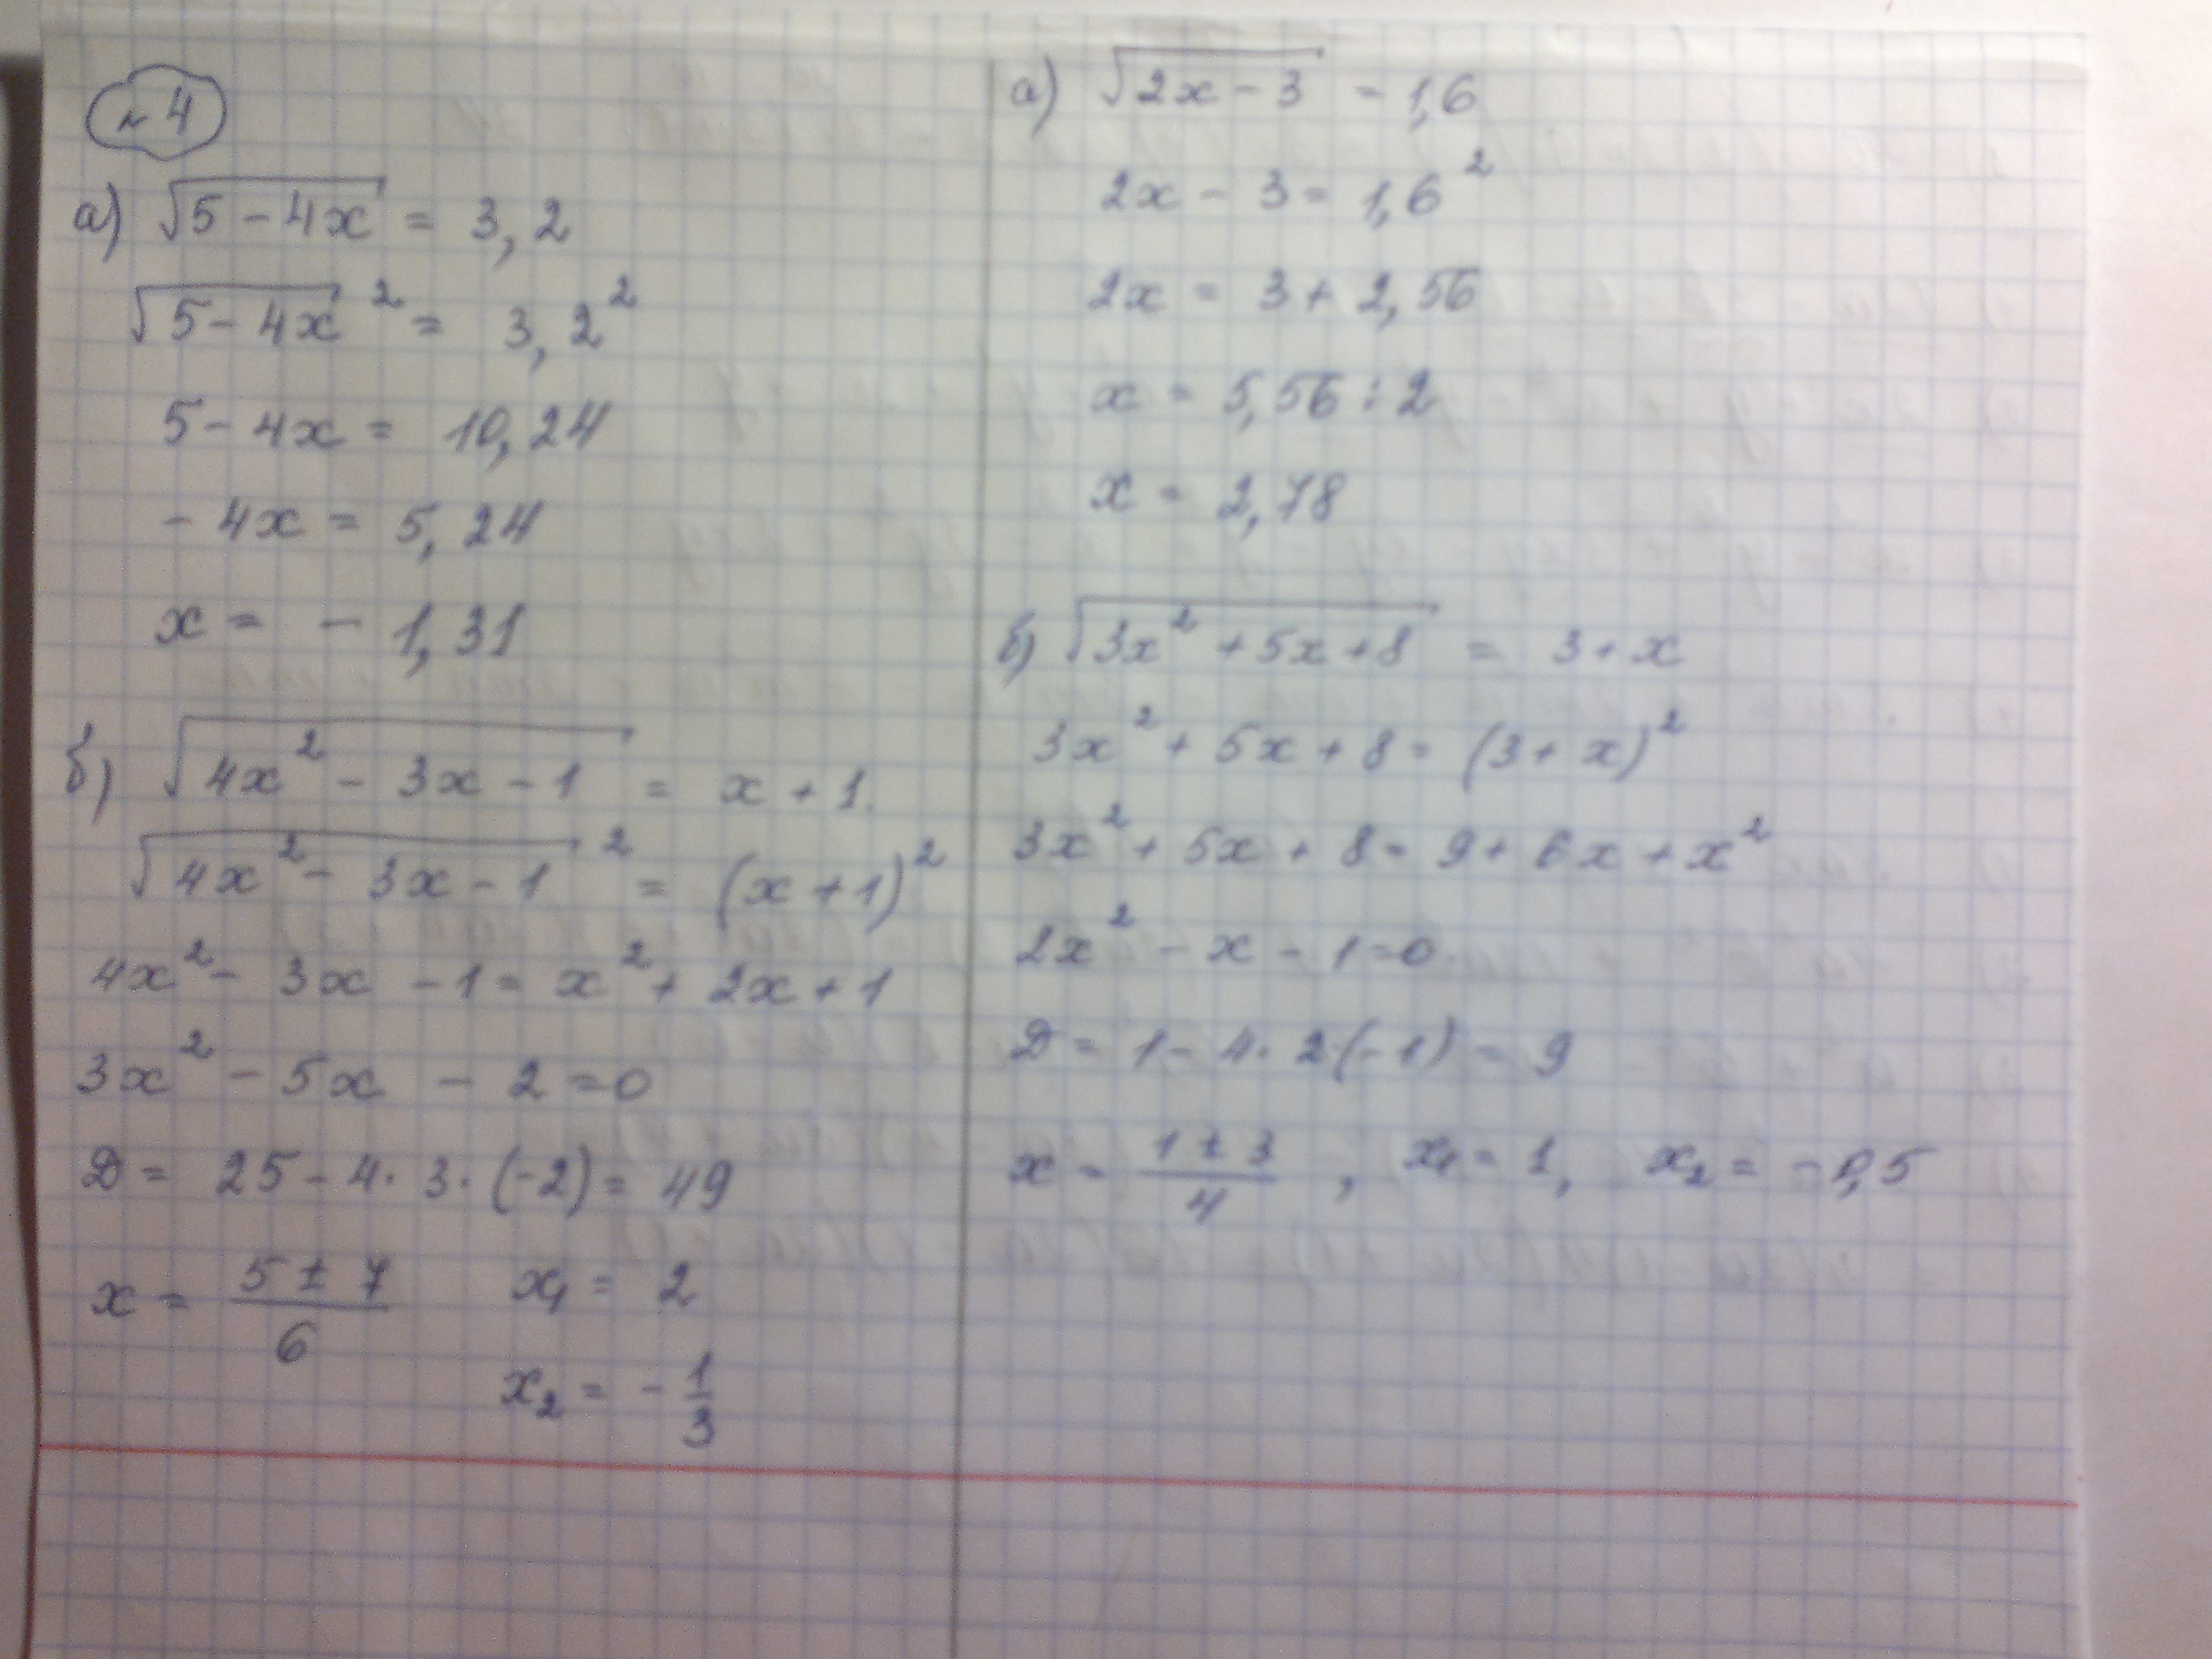 №4
а) √(5 - 4x) = 3,2
√(5 - 4x)² = 3,2²
5 - 4x = 10,24
- 4x = 5,24
x = - 1,31
б) √(4x² - 3x - 1) = x + 1.
√(4x² - 3x - 1)² = (x + 1)²
4x² - 3x - 1 = x² + 2x + 1
3x² - 5x - 2 = 0
D = 25 - 4 · 3 · (-2) = 49
x = (5 ± 7)/6 x₁ = 2
x₂ = - 1/3
а) √(2x - 3) = 1,6
2x - 3 = 1,6²
2x = 3 + 2,56
x = 5,56 : 2
x = 2,78
б) √(3x² + 5x + 8) = 3 + x
3x² + 5x + 8 = (3 + x)²
3x² + 5x + 8 = 9 + 6x + x²
2x² - x - 1 = 0.
D = 1 - 4 · 2 · (-1) = 9
x = (1 ± 3)/4 , x₁ = 1, x₂ = -0,5